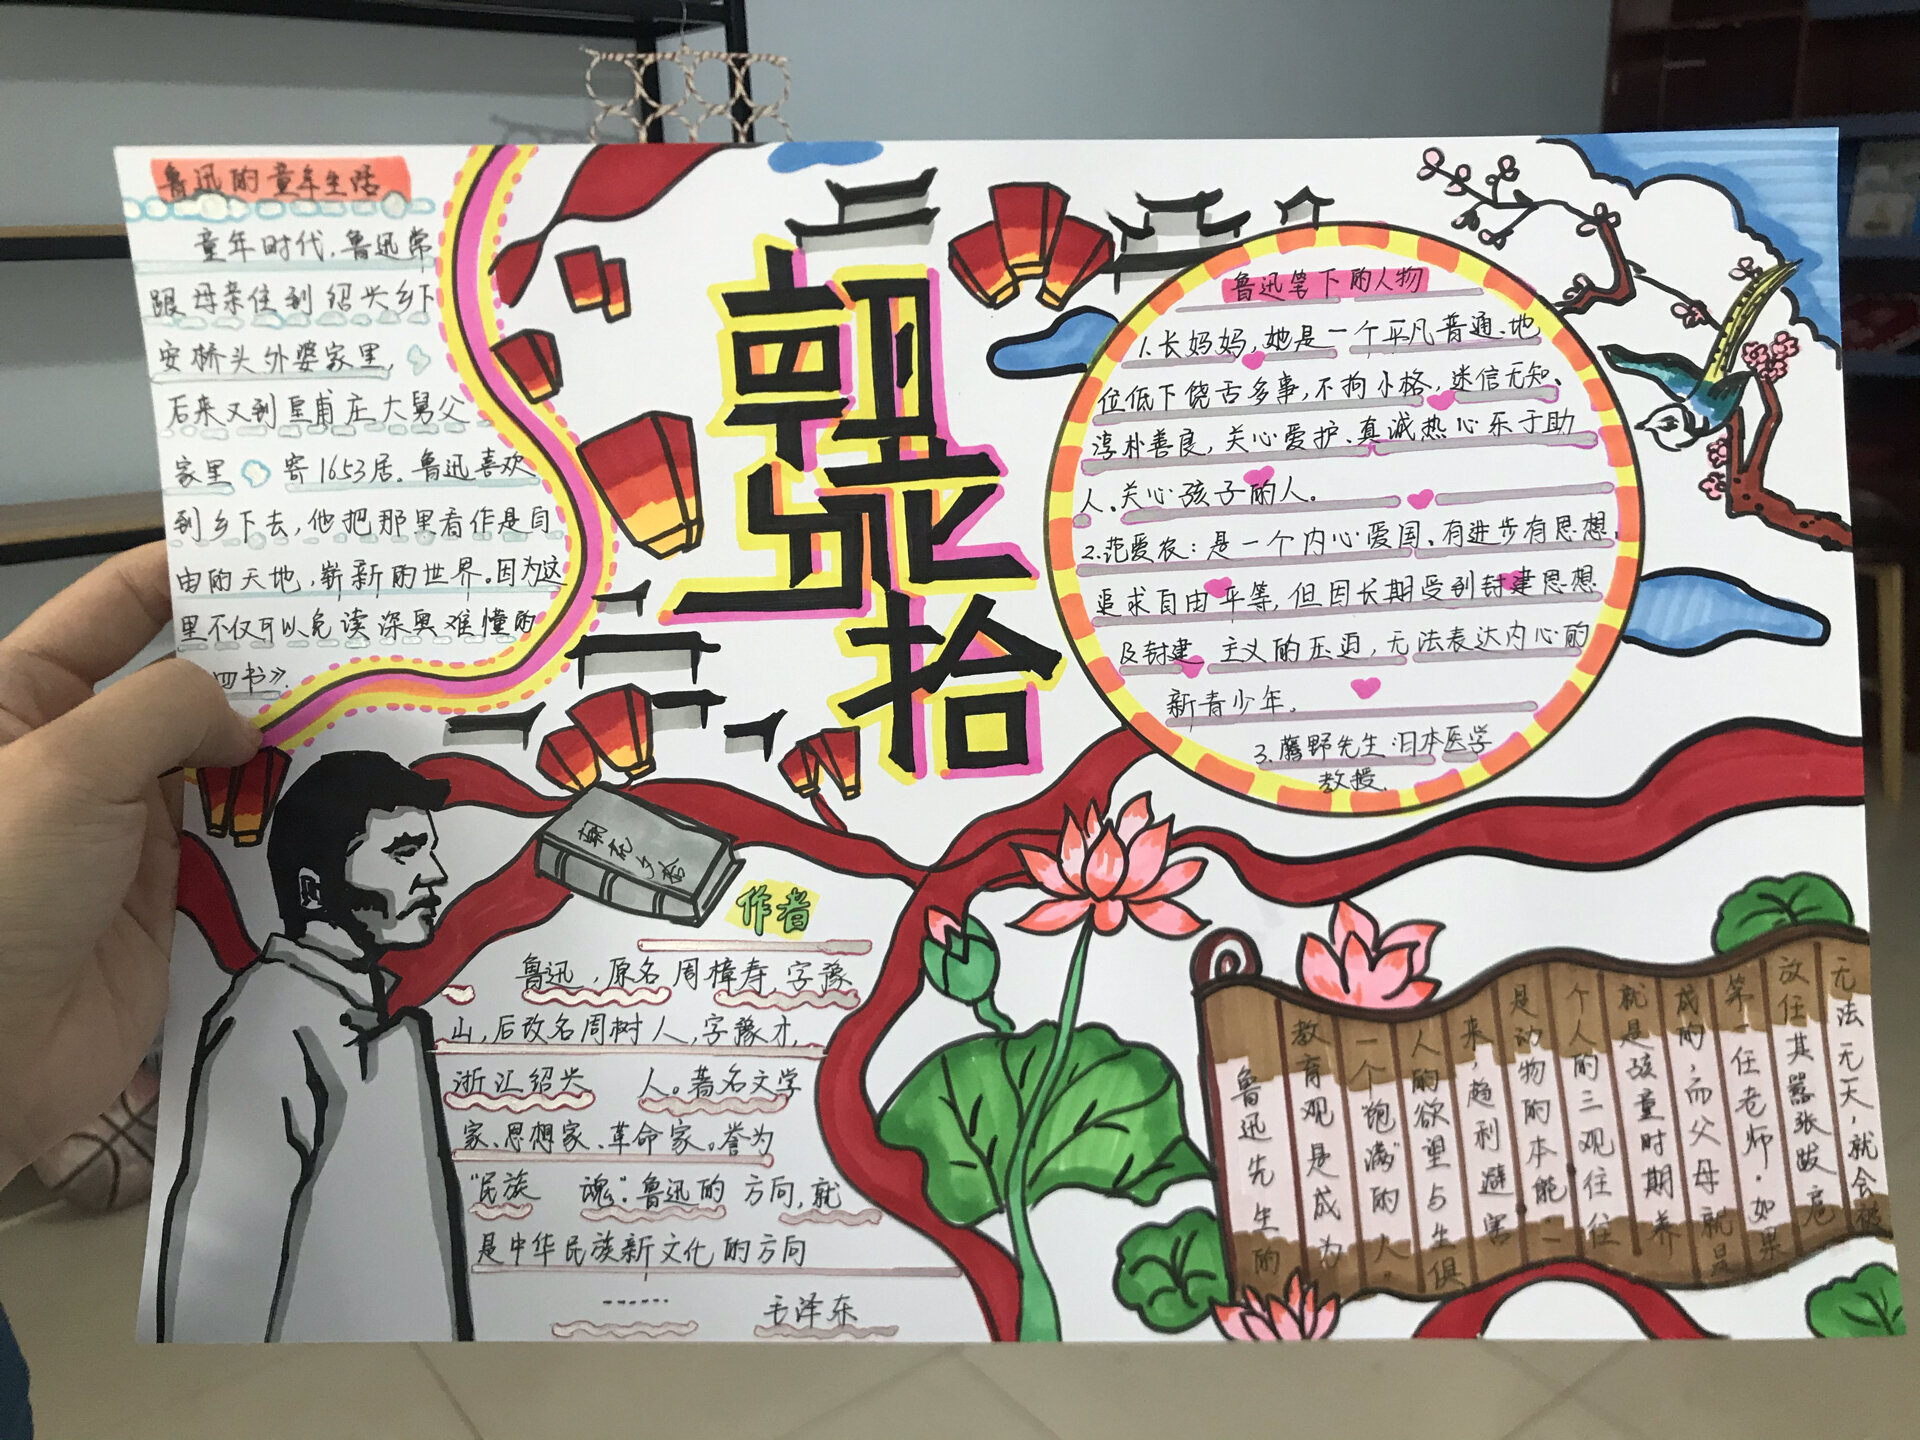 鲁迅的童年生活
童年时代,鲁迅常
跟母亲住到绍兴乡下
安桥头外婆家里,
后来又到皇甫庄大舅父
家里 寄1653居。鲁迅喜欢
到乡下去,他把那里看作是自
由的天地,崭新的世界。因为这
里不仅可以免读深奥难懂的
四书》.
朝花夕拾
鲁迅笔下的人物
1.长妈妈,她是一个平凡普通、地
位低下饶舌多事,不拘小格,迷信无知、
淳朴善良,关心爱护、真诚热心乐于助
人、关心孩子的人。
2.范爱农:是一个内心爱国、有进步有思想,
追求自由平等,但因长期受到封建思想
及封建 主义的压迫,无法表达内心的
新青少年。
3.藤野先生:日本医学
教授.
朝花夕拾
作者
鲁迅,原名周樟寿,字豫
山,后改名周树人,字豫才,
浙江绍兴 人。著名文学
家、思想家、革命家。誉为
“民族 魂”.鲁迅的 方向,就
是中华民族新文化的方向
…… 毛泽东
鲁迅先生的
教育观是成为
一个“饱满”的人.
人的欲望与生俱
来,趋利避害
是动物的本能.一
个人的三观往往
就是孩童时期养
成的,而父母就是
第一任老师.如果
放任其嚣张跋扈
无法无天,就会被